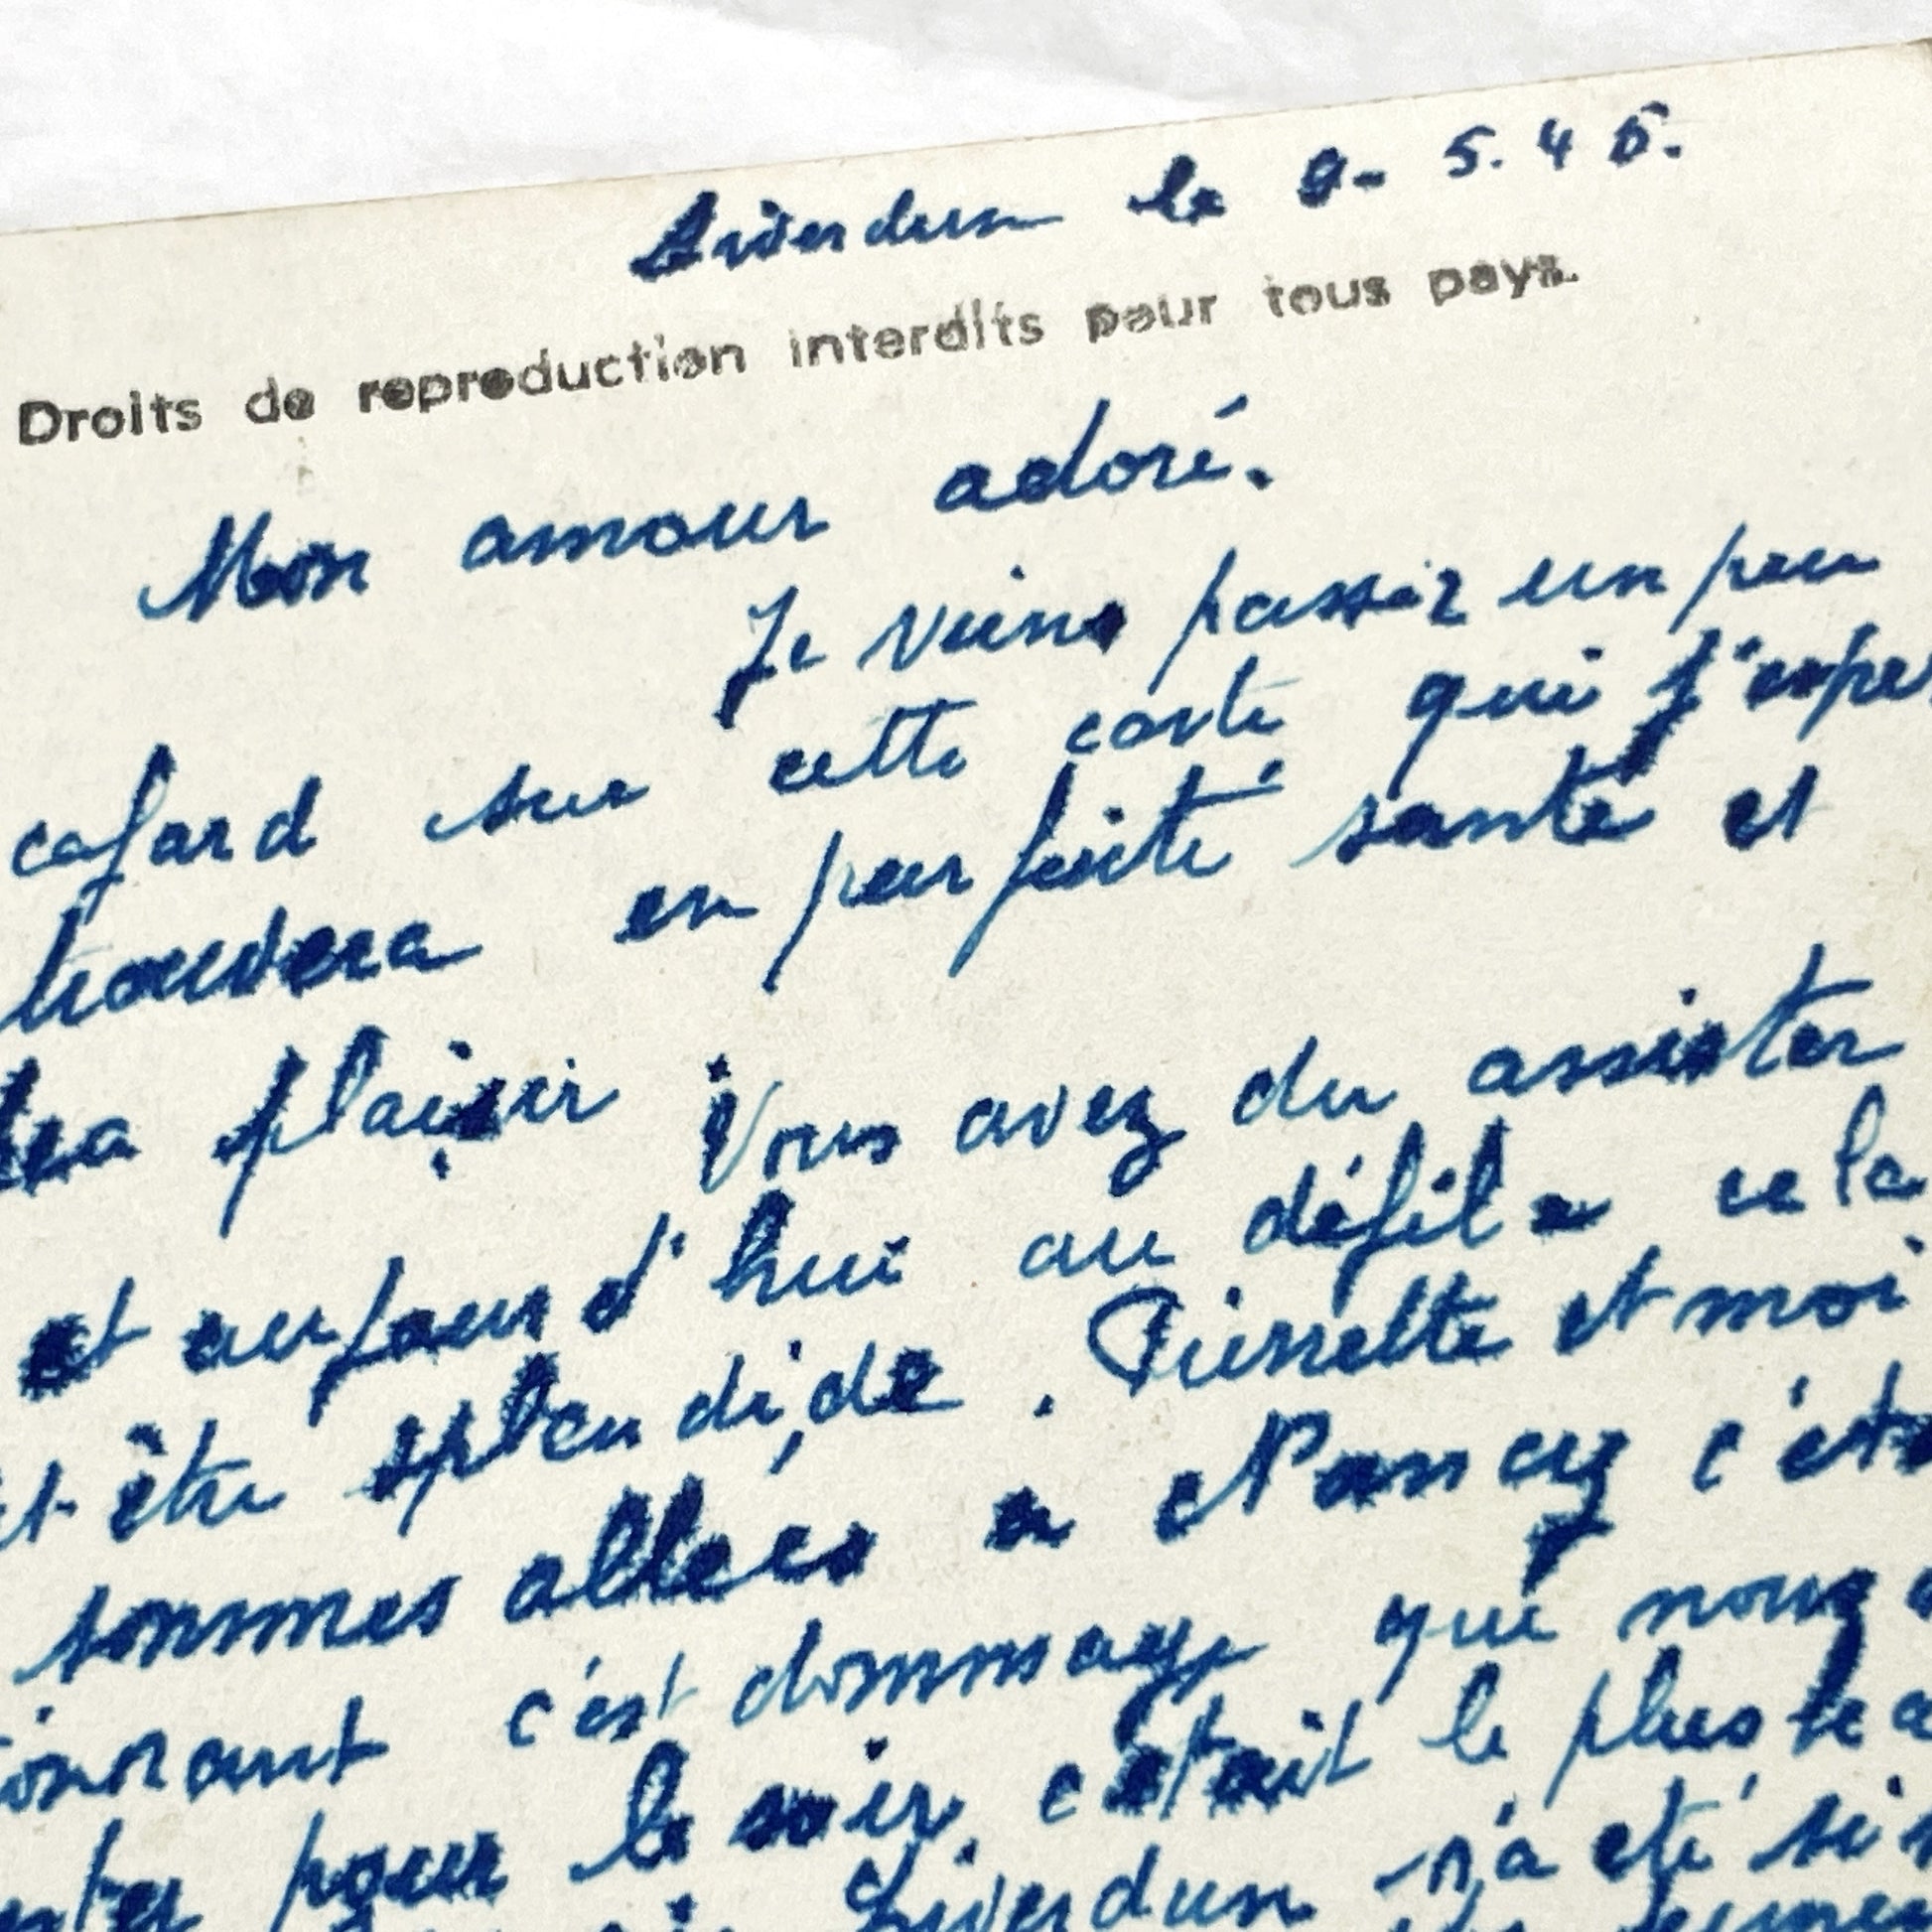 Liverdun le 9-5.45.
Droits de reproduction interdits pour tous pays.
Mon amour adoré.
Je viens passer un peu
cafard sur cette carte qui j'espè
trouvera en parfaite santé et
plaisir Vous avez du assister
et aujourd'hui au défile cela
être splendide. Pierrette et moi
sommes allées a Nancy c'éta
ionnant c'est dommage que nous
pour le soir. c'était le plus bea
Liverdun n'a été si